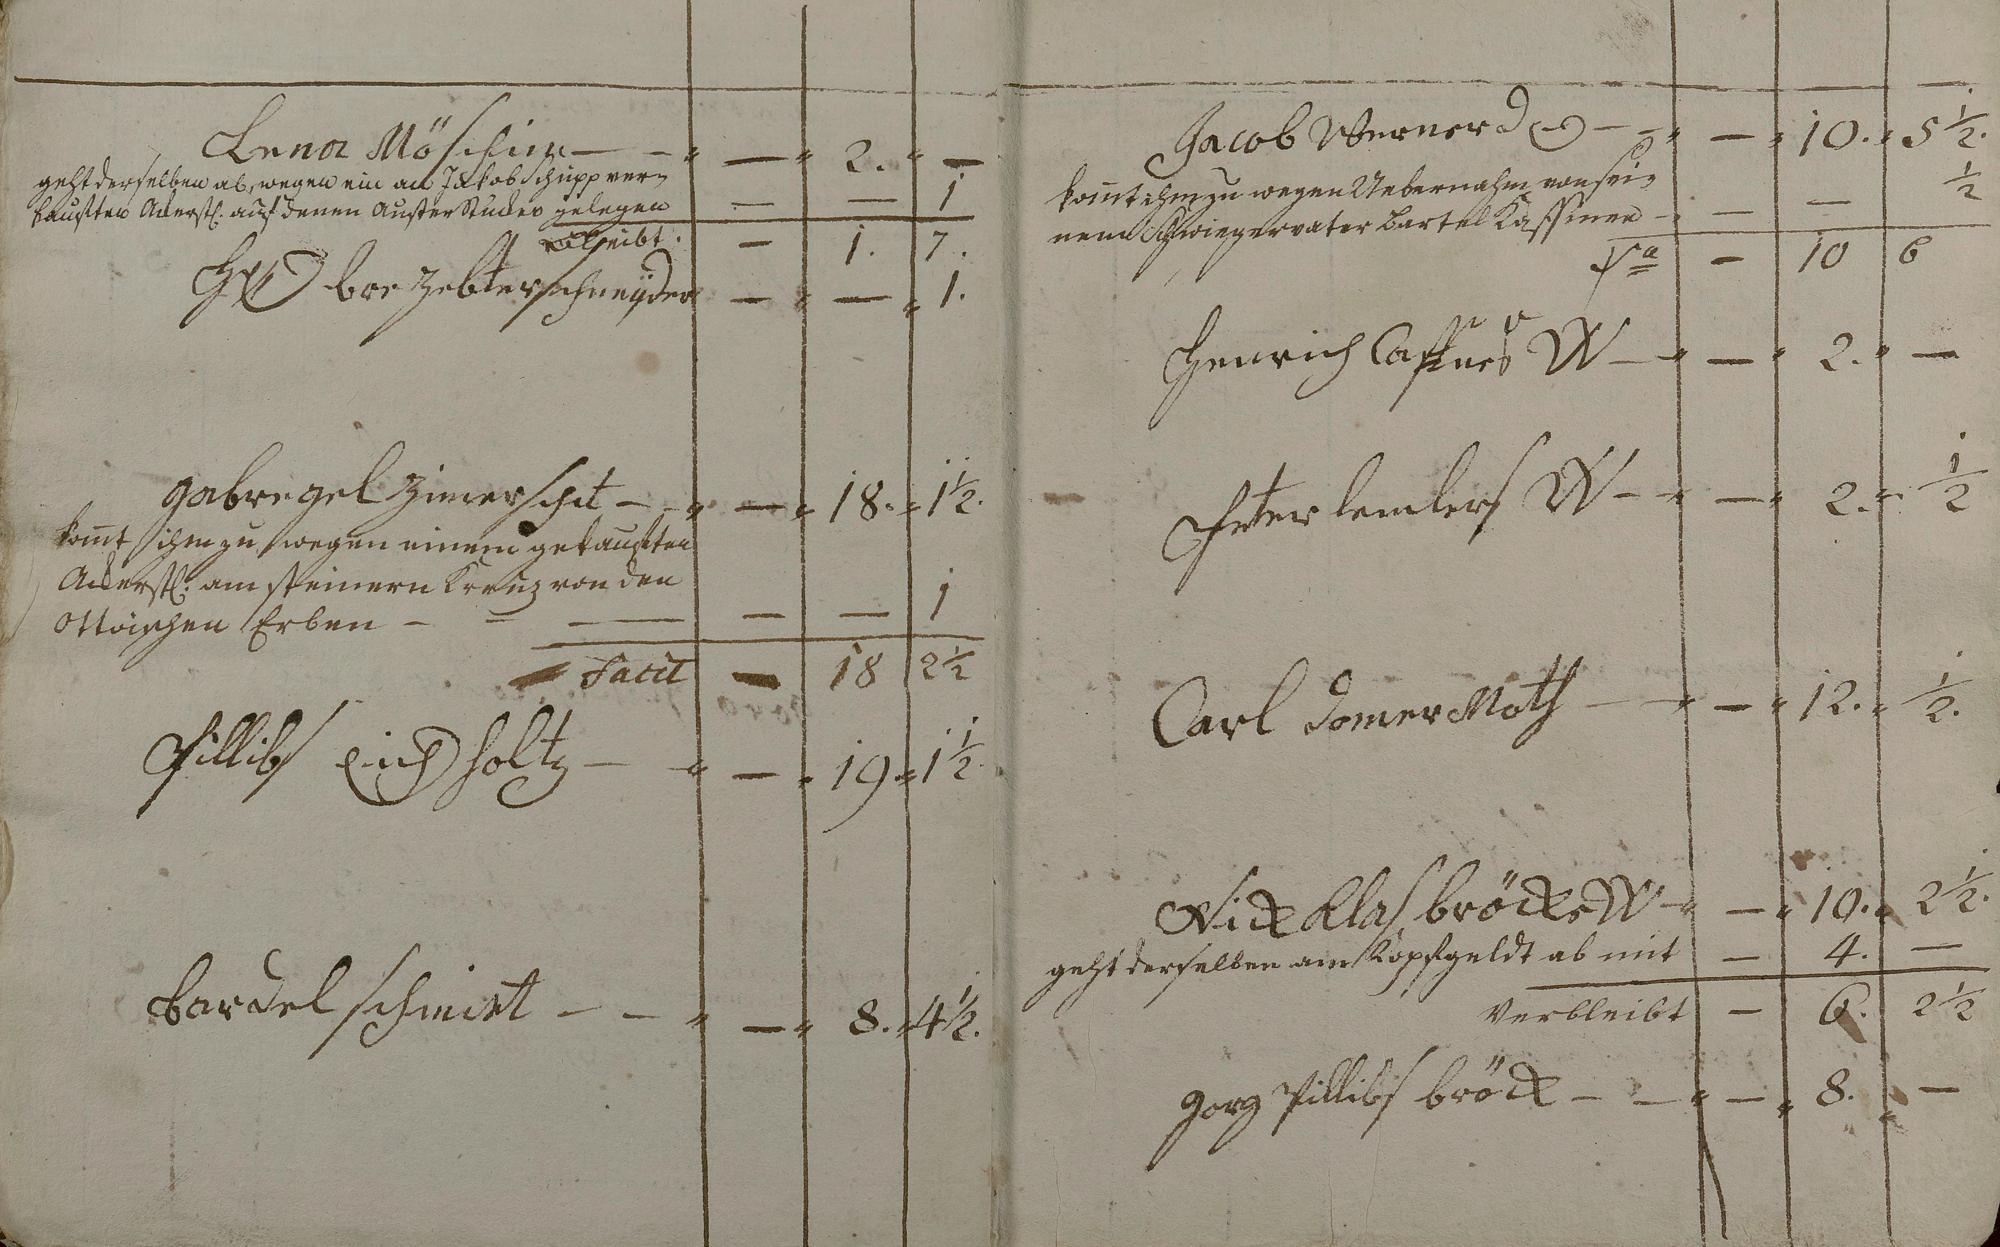 Lena Möschin — — " — " 2. " —
geht derselben ab, wegen ein an Jakob Schupp ver-
kauften Ackerstl. auf denen Auster Stücker gelegen — — 1
bleibt. — 1. 7.
bre Zebter schneyder — " — " 1.
gabregel Zimerschit — " — " 18. " 1½.
kom̄t ihm zu wegen einem gekauften
Ackerstl. am steinern Kreuz von den
Ottoischen Erben — — — — — 1
Facit — 18 2½
Pillibs Eich holtz — " — " 19 " 1½.
bardel schmitt — — " — " 8. " 4½.
Jacob Werner — " — " 10. " 5½.
kom̄t ihm zu wegen Uebernahm von sei- ½
nem Schwiegervater Bartel Kassiner — — —
Sa — 10 6
Henrich Cassner W — " — " 2. " —
Peter lemlers W — " — " 2. " ½
Carl domer Moth — " — " 12. " ½.
Nick Klas bröcks W — " — " 10. " 2½.
geht derselben am Kopfgeldt ab mit — 4. —
Verbleibt — 6. 2½
gorg Pillibs bröck — — " — " 8. " —